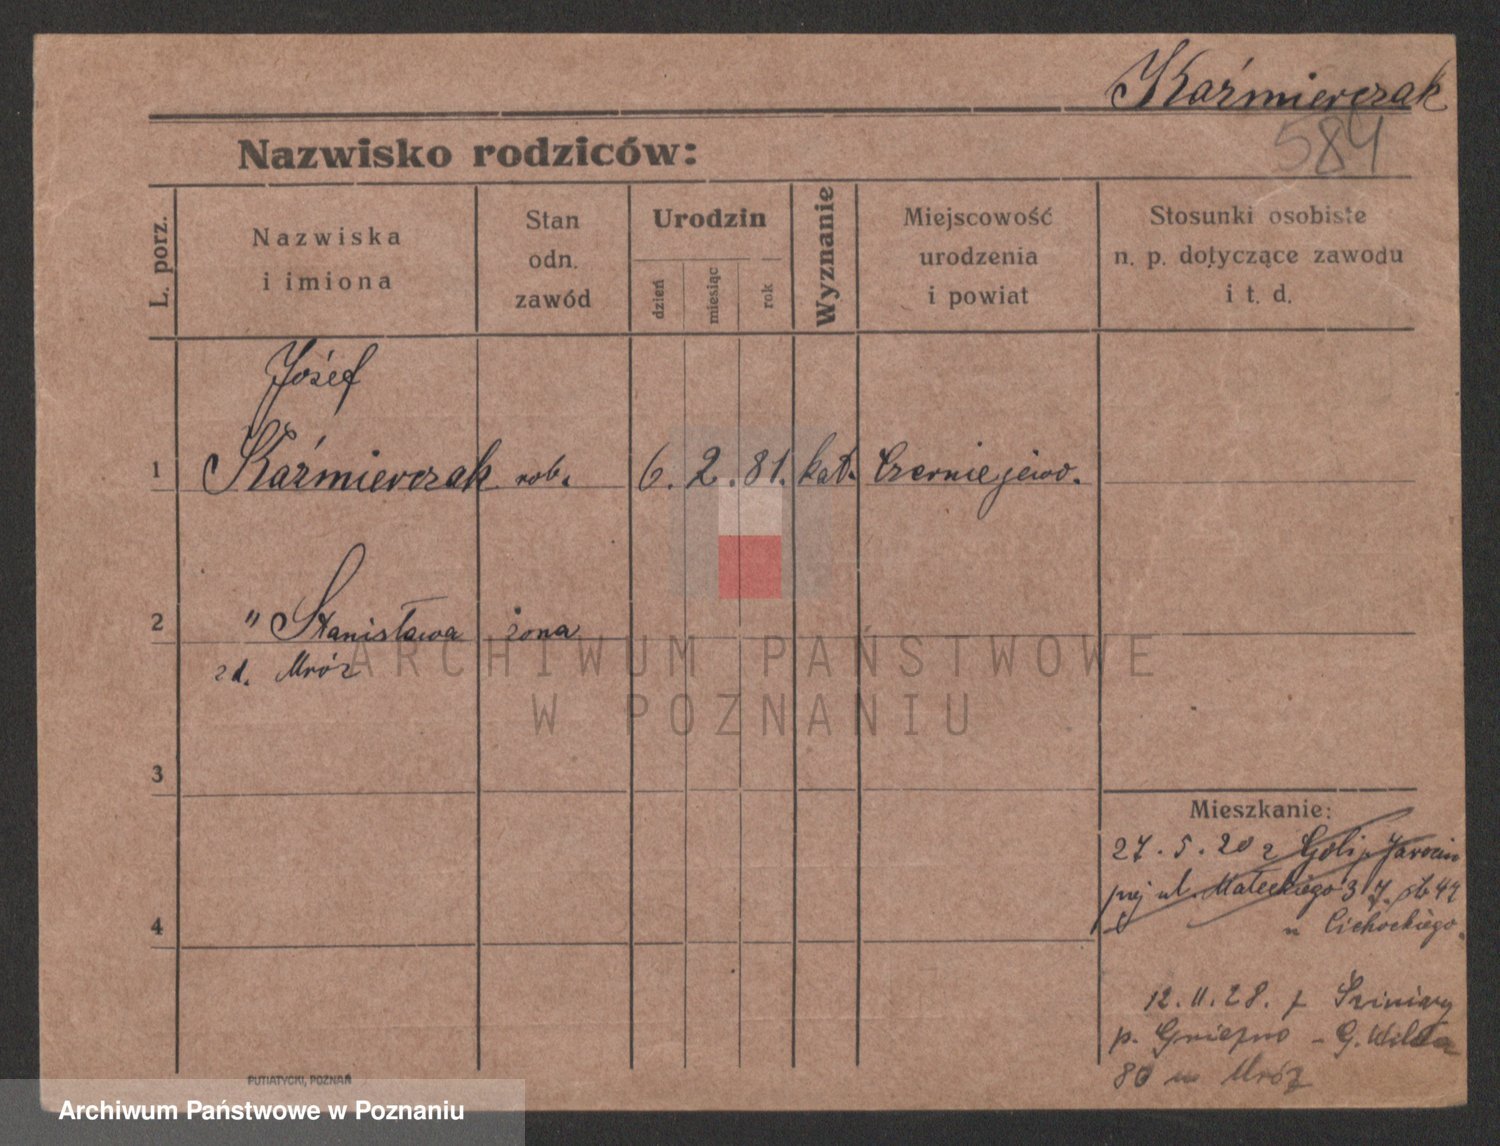 Kaźmierczak
584
Nazwisko rodziców:
L. porz.
Nazwiska
i imiona
Stan
odn.
zawód
Urodzin
dzień
miesiąc
rok
Wyznanie
Miejscowość
urodzenia
i powiat
Stosunki osobiste
n. p. dotyczące zawodu
i t. d.
Józef
1 Kaźmierczak rob. 6. 2. 81. kat. Czerniejewo.
2 " Stanisława żona
zd. Mróz
ARCHIWUM PAŃSTWOWE
W POZNANIU
3
Mieszkanie:
27. 5. 20 z Jarocin
ul. Małeckiego 37.
u Cichockiego.
4
12. 11. 28.
p. Gniezno - G. Wilda
80 Mróz
PUTIATYCKI, POZNAŃ
Archiwum Państwowe w Poznaniu